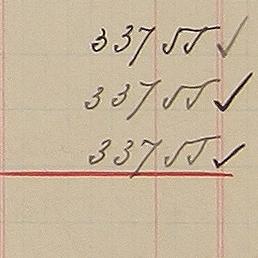 337 55 ✓
337 55 ✓
337 55 ✓